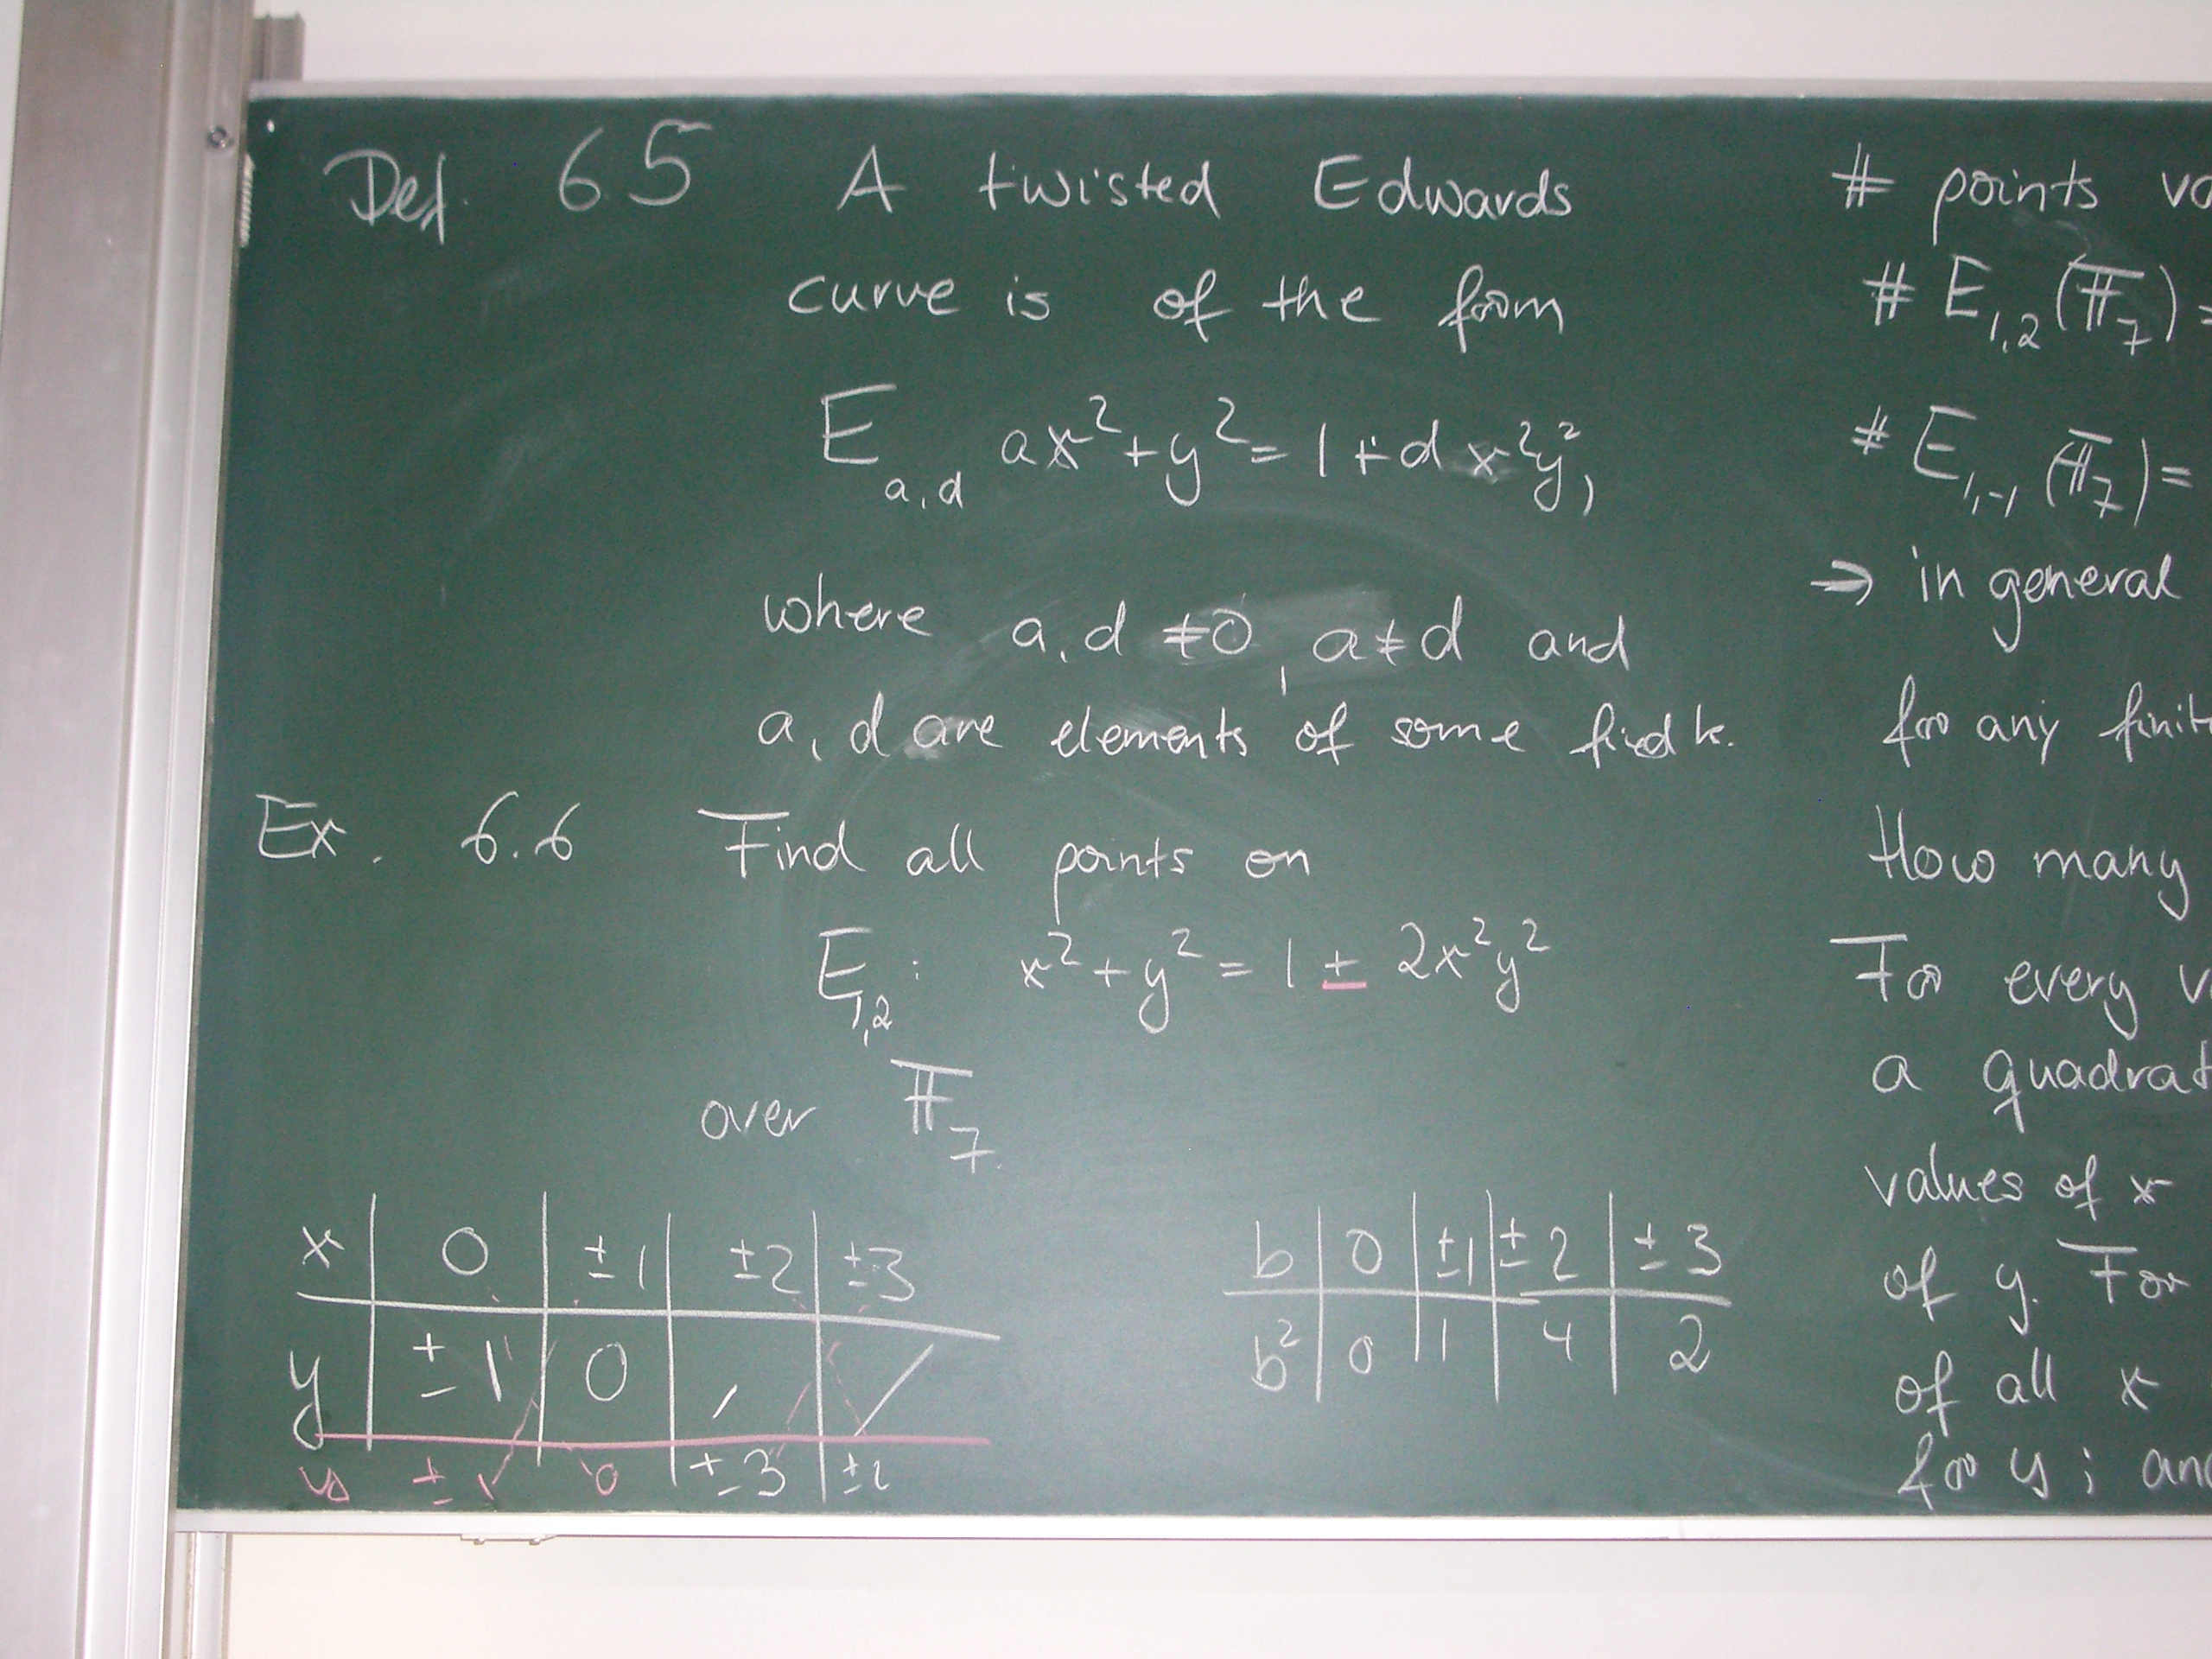 Def. 6.5 A twisted Edwards
curve is of the form
E_{a,d} ax²+y² = 1+dx²y²,
where a, d ≠ 0, a ≠ d and
a, d are elements of some field k.
Ex. 6.6 Find all points on
E_{1,2}: x²+y² = 1 ± 2x²y²
over 𝔽_7.
x | 0 | ±1 | ±2 | ±3
y | ±1 | 0 | / | /
y | ±1 | 0 | ±3 | ±2
b | 0 | ±1 | ±2 | ±3
b² | 0 | 1 | 4 | 2
# points
# E_{1,2}(𝔽_7) =
# E_{1,-1}(𝔽_7) =
→ in general
for any
How many
For every
a
values of x
of y. For
of all x
for y; and